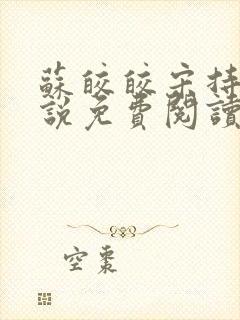 蘇皎皎宋持
說免費閱讀
空棗